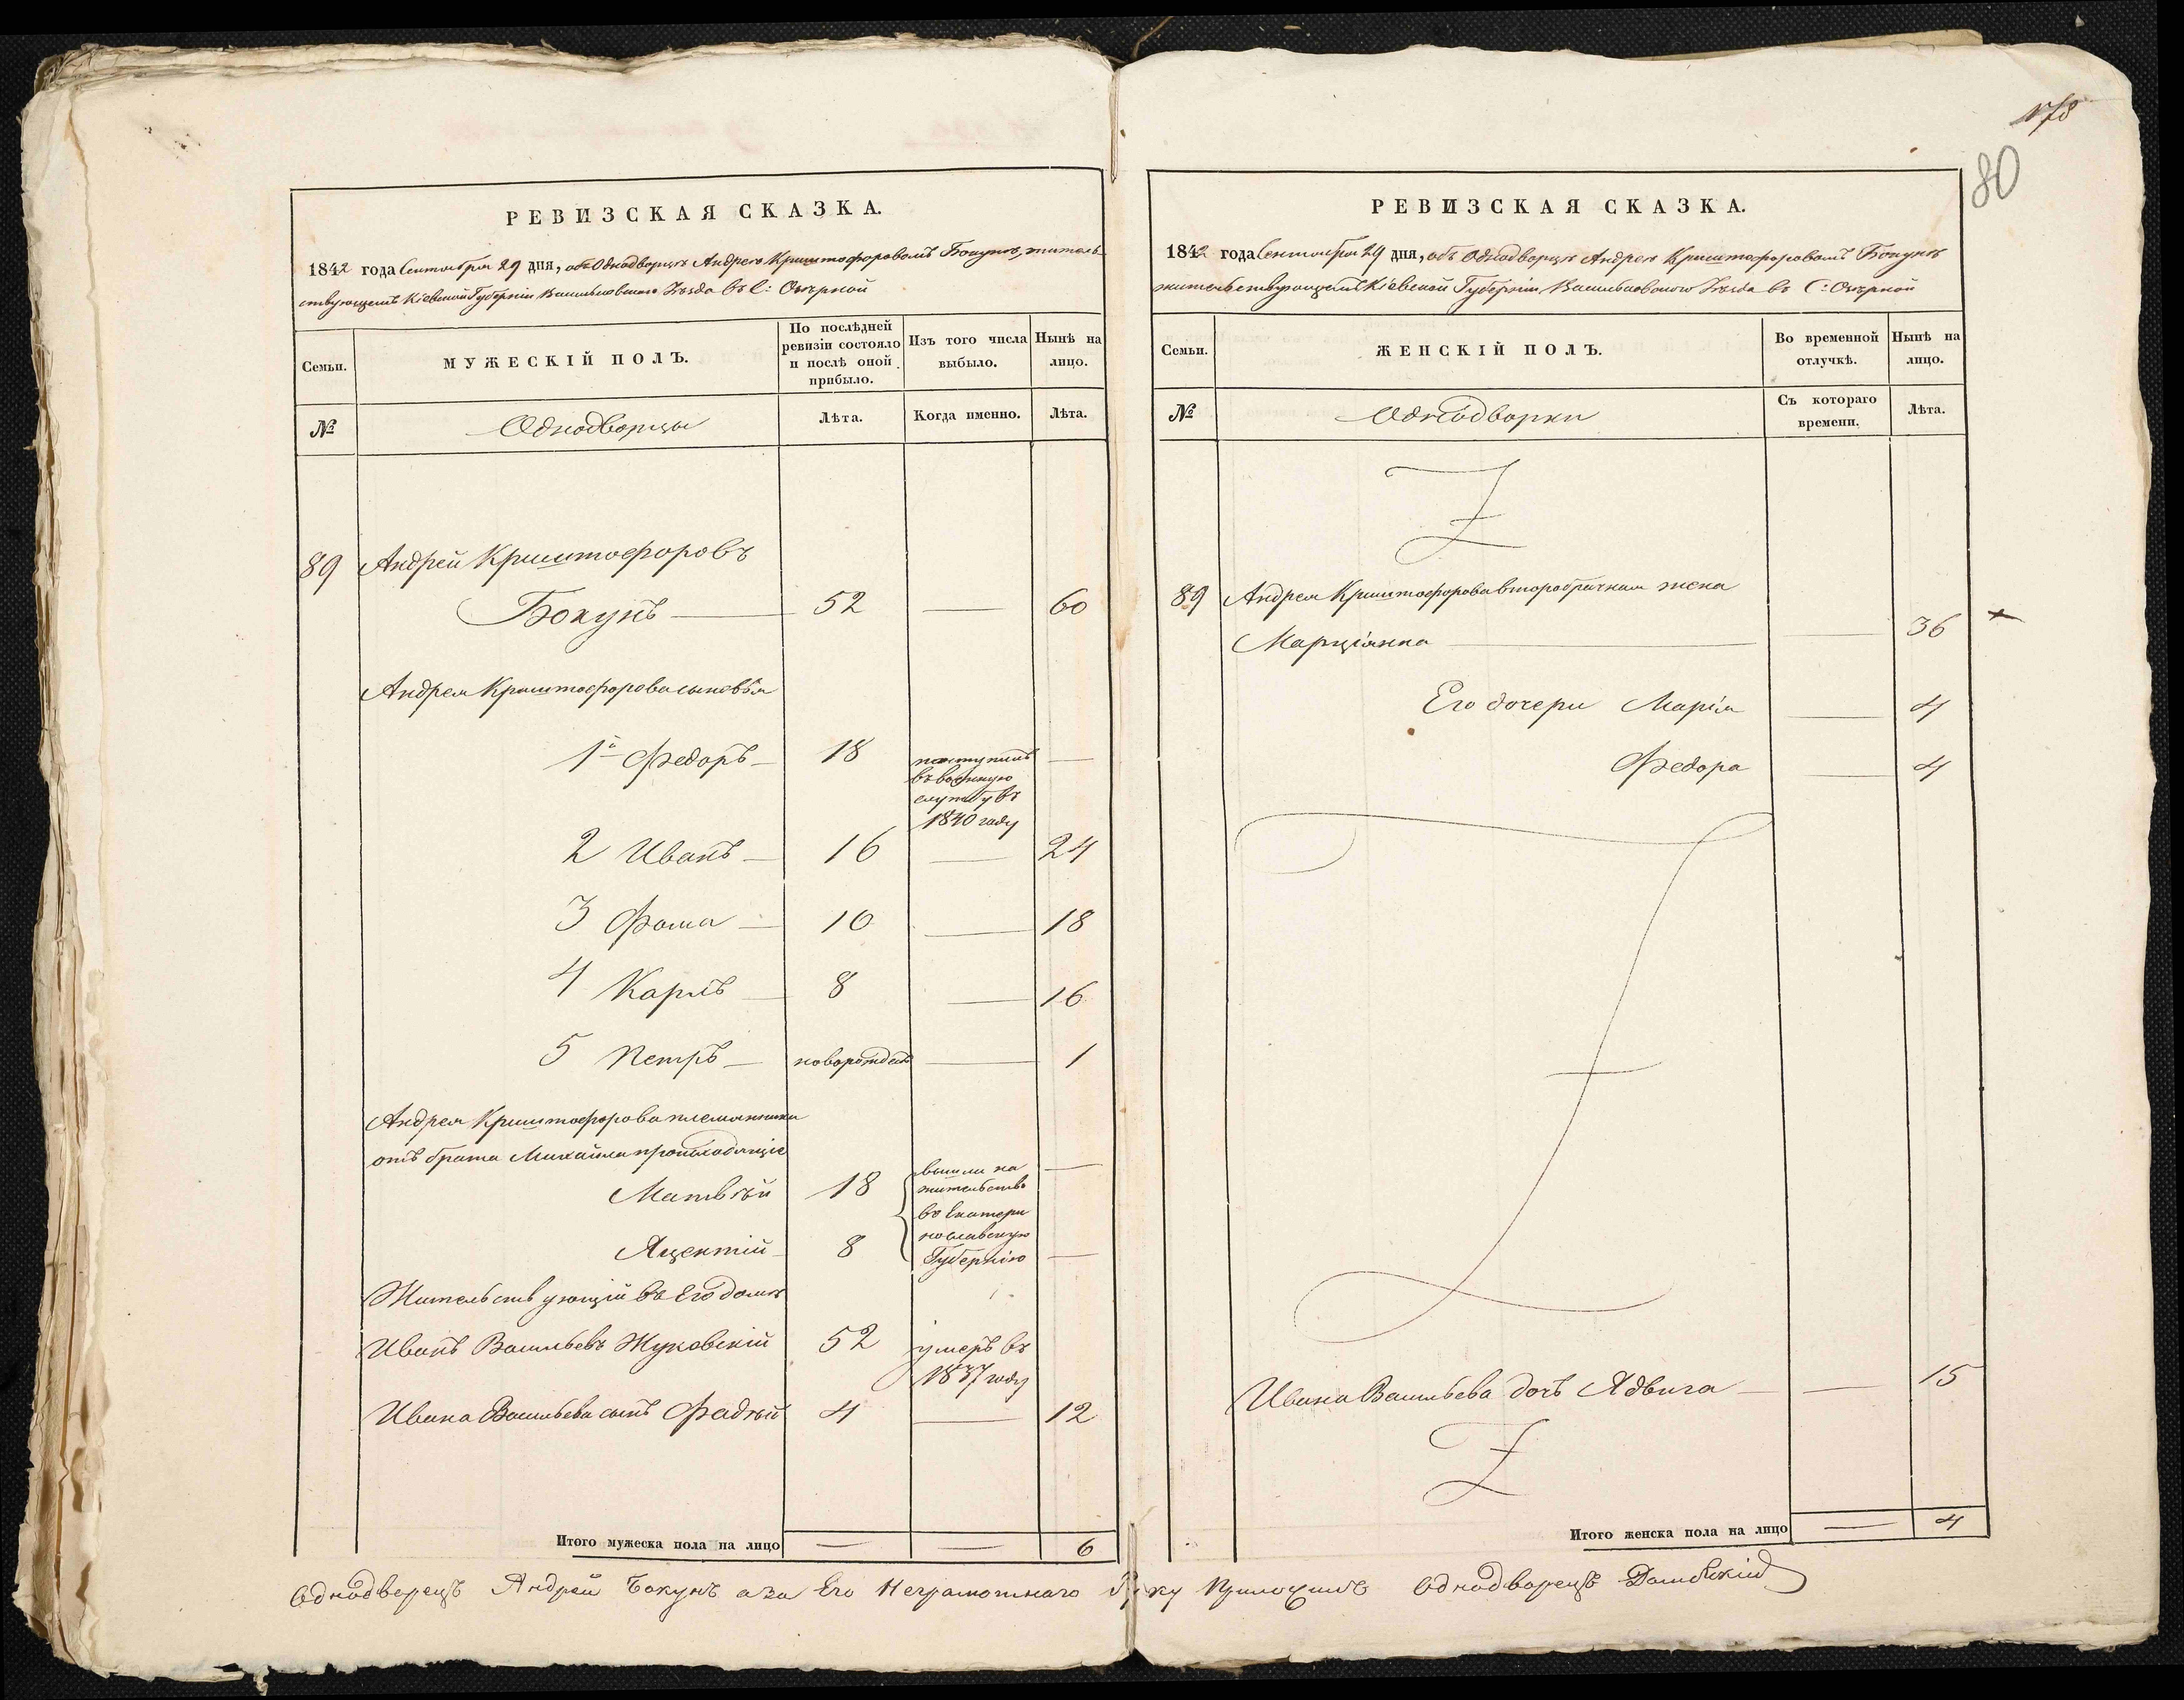 178
80
РЕВИЗСКАЯ СКАЗКА.
1842 года Сентября 29 дня, объ Однодворцѣ Андрею Криштофоровомъ Бокунѣ, житель-
ствующемъ Кіевской Губерніи Васильковскаго Уѣзда въ С: Озѣрной
Семьи.
МУЖЕСКІЙ ПОЛЪ.
По послѣдней ревизіи состояло и послѣ оной прибыло.
Изъ того числа выбыло.
Нынѣ на лицо.
№
Однодворцы
Лѣта.
Когда именно.
Лѣта.
89 Андрей Криштофоровъ
Бокунъ — 52 — 60
Андрея Криштофорова сыновья
1й Федоръ — 18 поступилъ —
въ военную
службу въ
1840 году
2 Иванъ — 16 — 24
3 Фома — 10 — 18
4 Карлъ — 8 — 16
5 Петръ — новорожден — 1
Андрея Криштофорова племянники
отъ брата Михайла происходящіе
Матвѣй 18 вышли на —
жительство
въ Екатери
нославскую
Яцентій — 8 Губернію —
Жительствующій въ Его домѣ
Иванъ Васильевъ Жуковскій 52 умеръ въ
1837 году
Ивана Васильева сынъ Фадѣй 4 — 12
Итого мужеска пола на лицо — — 6
РЕВИЗСКАЯ СКАЗКА.
1842 года Сентября 29 дня, объ Однодворцѣ Андрея Криштофоровомъ Бокунѣ
жительствующемъ Кіевской Губерніи Васильковскаго Уѣзда въ С: Озѣрной
Семьи.
ЖЕНСКІЙ ПОЛЪ.
Во временной отлучкѣ.
Нынѣ на лицо.
№
Однодворки
Съ котораго времени.
Лѣта.
89 Андрея Криштофорова второбрачная жена
Марціянна — — 36
Его дочери Марія — 4
Федора — 4
Ивана Васильева дочь Ядвига — — 15
Итого женска пола на лицо — 4
Однодворецъ Андрей Бокунъ а за Его Неграмотнаго руку Приложилъ Однодворецъ